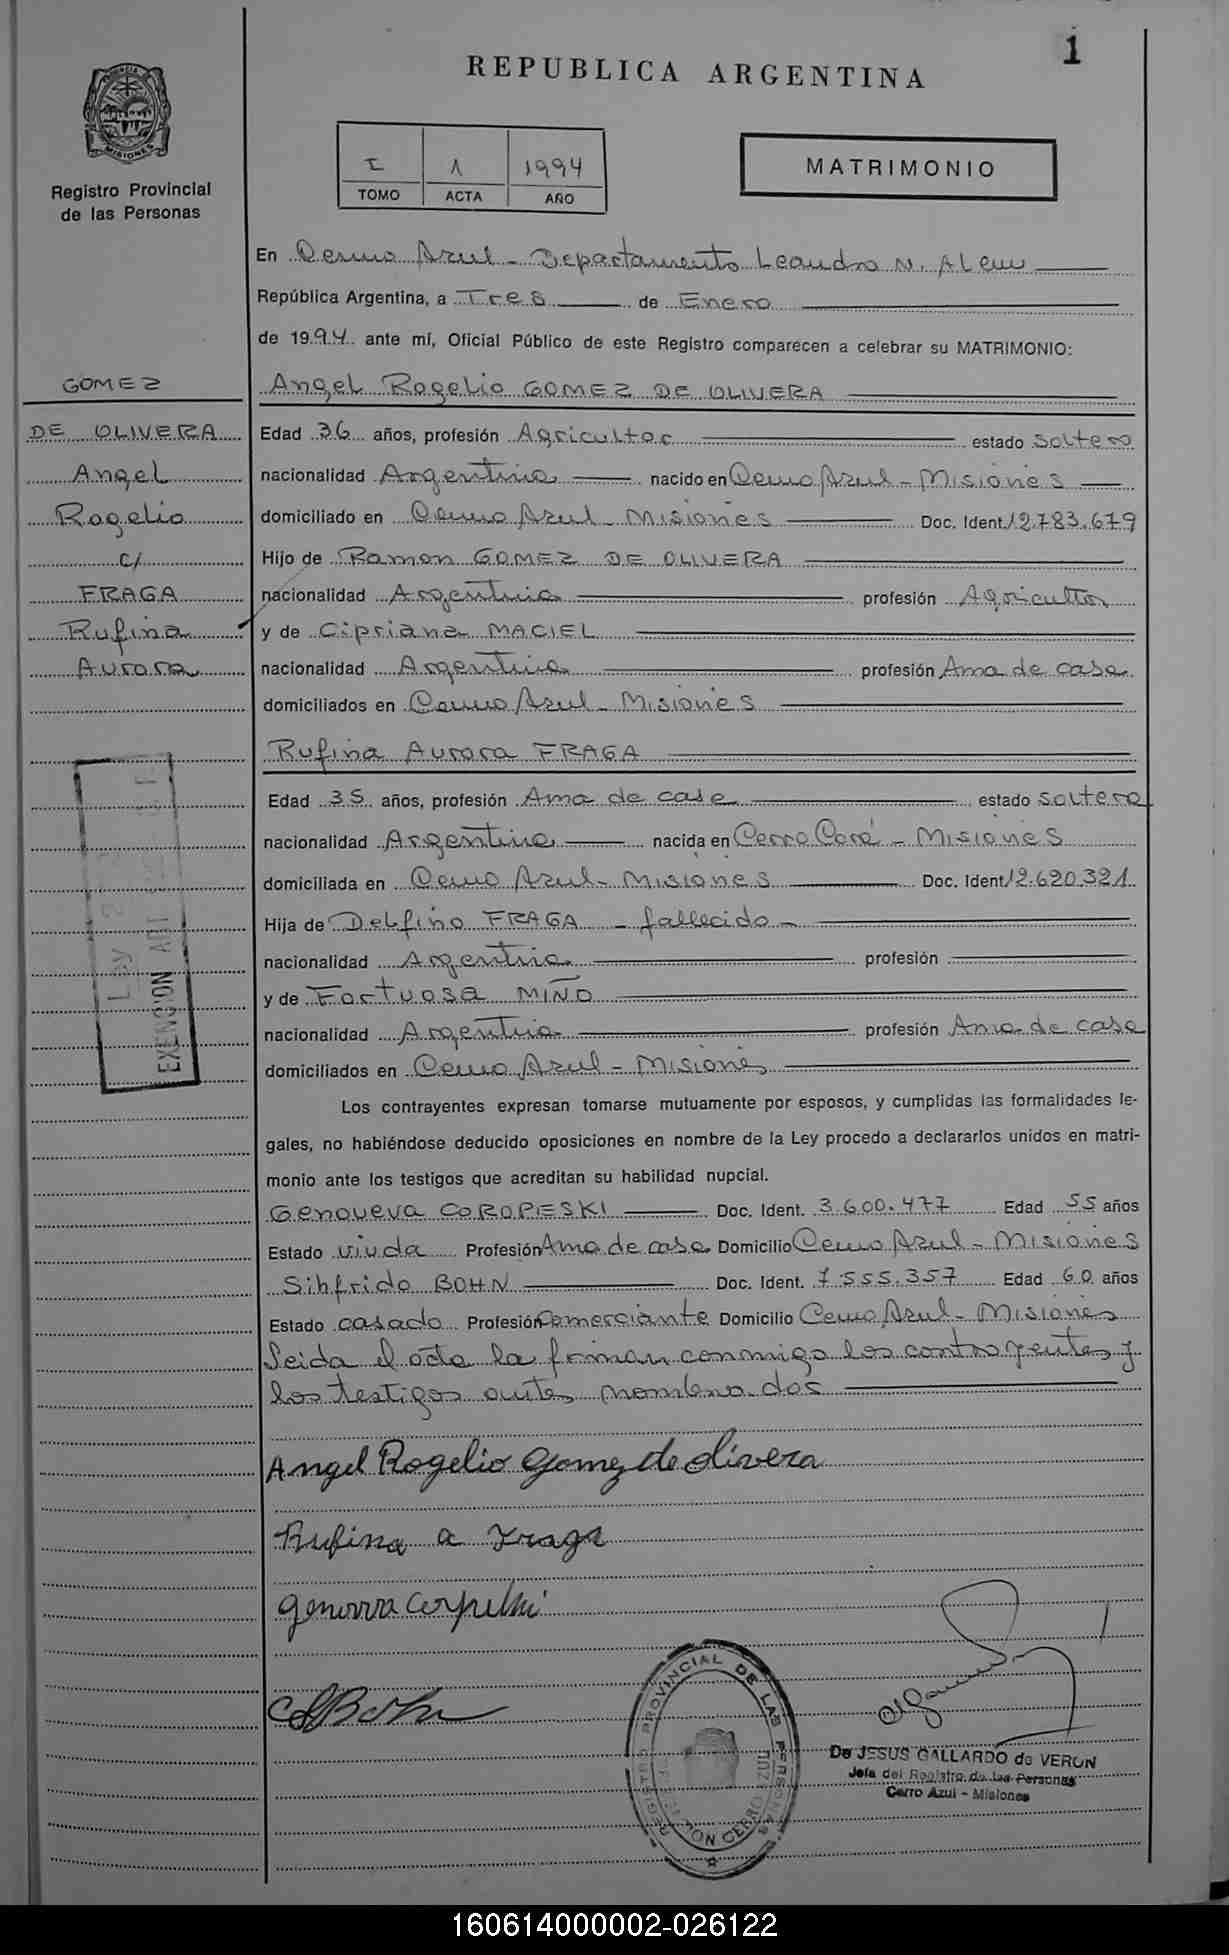 1
REPUBLICA ARGENTINA
PROVINCIA DE
MISIONES
Registro Provincial
de las Personas
I 1 1994
TOMO ACTA AÑO
MATRIMONIO
En Cerro Azul - Departamento Leandro N. Alem
República Argentina, a Tres de Enero
de 1994 ante mí, Oficial Público de este Registro comparecen a celebrar su MATRIMONIO:
GOMEZ
DE OLIVERA
Angel
Rogelio
c/
FRAGA
Rufina
Aurora
Angel Rogelio GOMEZ DE OLIVERA
Edad 36 años, profesión Agricultor estado soltero
nacionalidad Argentina nacido en Cerro Azul - Misiones
domiciliado en Cerro Azul - Misiones Doc. Ident. 12.783.679
Hijo de Ramon GOMEZ DE OLIVERA
nacionalidad Argentina profesión Agricultor
y de Cipriana MACIEL
nacionalidad Argentina profesión Ama de casa
domiciliados en Cerro Azul - Misiones
Rufina Aurora FRAGA
Edad 35 años, profesión Ama de casa estado soltera
nacionalidad Argentina nacida en Cerro Corá - Misiones
domiciliada en Cerro Azul - Misiones Doc. Ident. 12.620.321
Hija de Delfino FRAGA - fallecido -
nacionalidad Argentina profesión
y de Fortuosa MIÑO
nacionalidad Argentina profesión Ama de casa
domiciliados en Cerro Azul - Misiones
EXENSION
LEY
Los contrayentes expresan tomarse mutuamente por esposos, y cumplidas las formalidades le-
gales, no habiéndose deducido oposiciones en nombre de la Ley procedo a declararlos unidos en matri-
monio ante los testigos que acreditan su habilidad nupcial.
Genoveva COROPESKI Doc. Ident. 3.600.477 Edad 55 años
Estado viuda Profesión Ama de casa Domicilio Cerro Azul - Misiones
Sihfrido BOHN Doc. Ident. 7.555.357 Edad 60 años
Estado casado Profesión Comerciante Domicilio Cerro Azul - Misiones
Leida el acta la firman conmigo los contrayentes y
los testigos antes nombrados
Angel Rogelio Gomez de Olivera
Rufina a Fraga
REGISTRO PROVINCIAL DE LAS PERSONAS
CERRO AZUL
De JESUS GALLARDO de VERON
Jefa del Registro de las Personas
Cerro Azul - Misiones
160614000002-026122